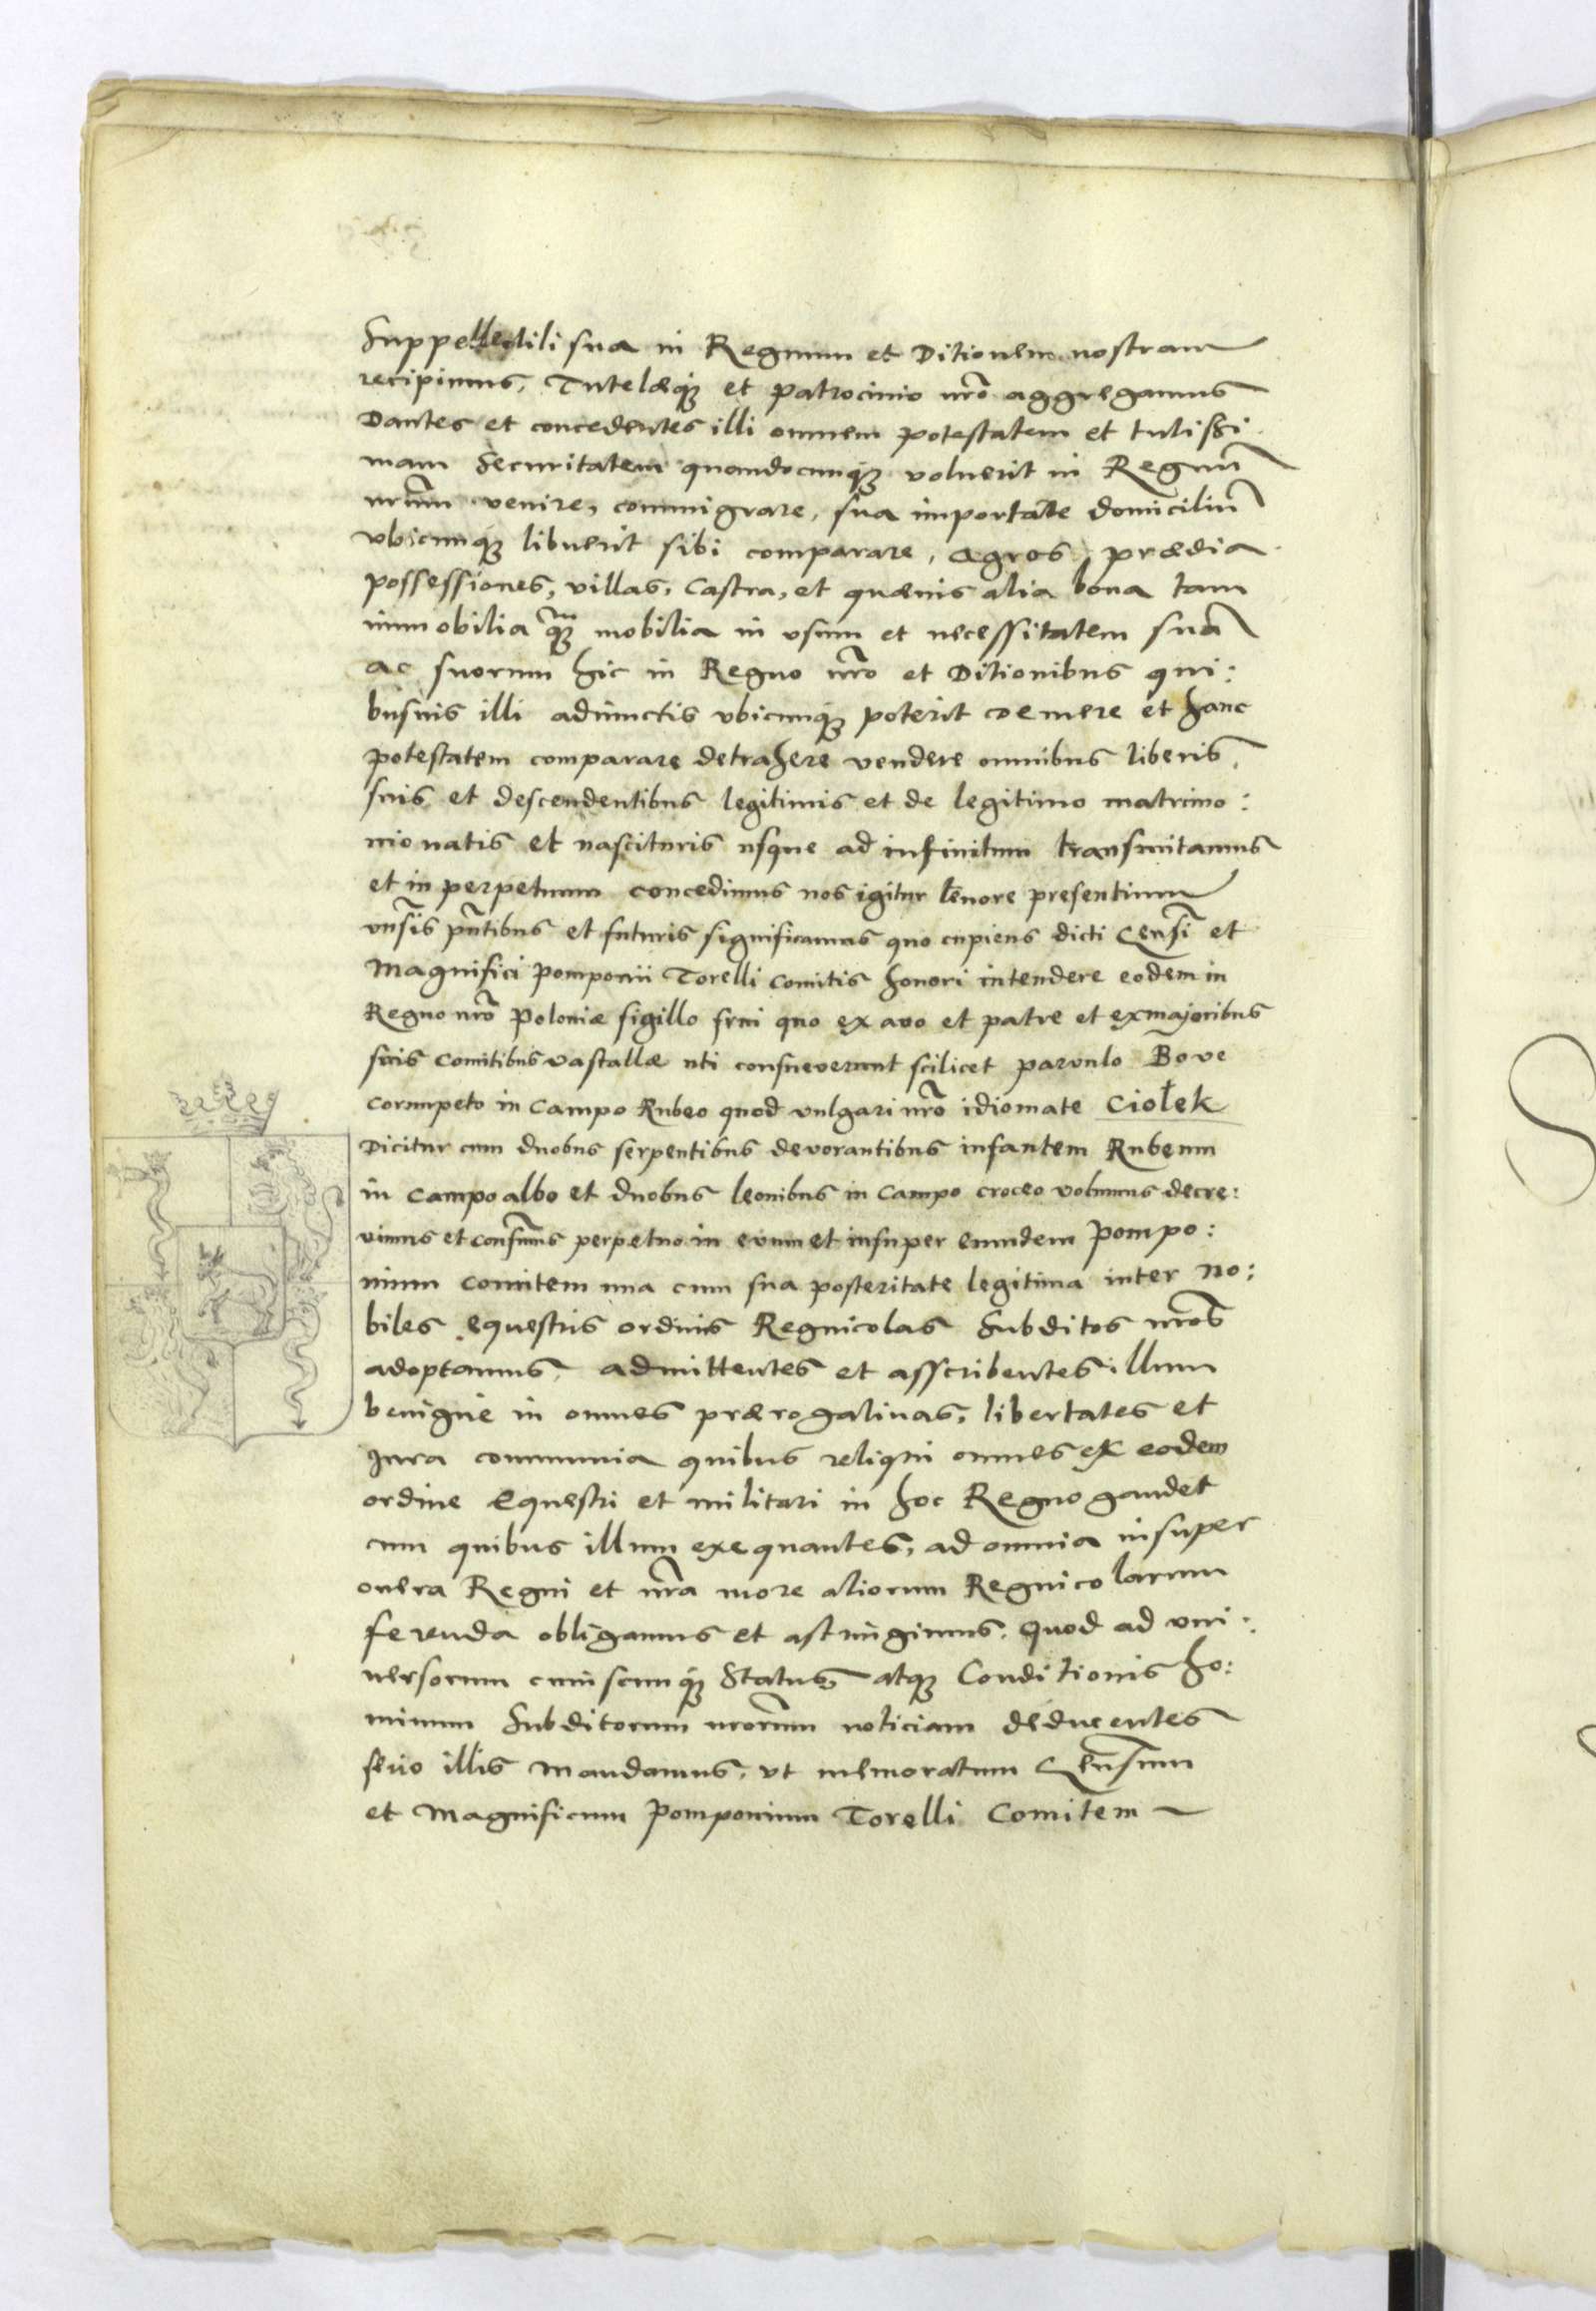 Suppellectili sua in Regnum et Ditionem nostram
recipimus, Tutelæq; et patrocinio nr̃o aggregamus
Dantes et concedentes illi omnem potestatem et tutissi
mam Securitatem quandocunq; voluerit in Regnũ
nrũm venire, commigrare, sua importare domiciliũ
vbicunq; libuerit sibi comparare, agros, prædia
possessiones, villas, Castra, et quævis alia bona tam
immobilia q̃ꝫ mobilia in vsum et necessitatem suã
ac suorum hic in Regno nr̃o et Ditionibus qui:
busvis illi adiunctis vbicunq; poterit coemere et hanc
potestatem comparare detrahere vendere omnibus liberis
suis et descendentibus legitimis et de legitimo matrimo:
nio natis et nascituris usque ad infinitum transmitamus
et in perpetuum concedimus nos igitur tenore presentium
vnṽsis pñtibus et futuris significamus quo cupiens dicti Gensĩ et
Magnifici Pomponii Torelli Comitis honori intendere eodem in
Regno nr̃o Poloniæ sigillo frui quo ex avo et patre et ex majoribus
suis Comitibus vastallæ uti consueverunt scilicet parvulo Bove
cornupeto in Campo Rubeo quod vulgari nr̃o idiomate Ciołek
Dicitur cum duobus serpentibus devorantibus infantem Rubeum
in Campo albo et duobus leonibus in Campo croceo volumus decre:
vimus et consm̃us perpetuo in evum et insuper eumdem Pompo:
nium Comitem una cum sua posteritate legitima inter No:
biles equestris ordinis Regnicolas Subditos nr̃os
adoptamus, admittentes et asscribentes illum
benigne in omnes prærogativas, libertates et
Jura communia quibus reliqui omnes ex eodem
ordine Equestri et militari in hoc Regno gaudet
cum quibus illum exequantes, ad omnia insuper
onera Regni et nr̃a more aliorum Regnicolarum
ferenda obligamus et astringimus. Quod ad vni:
versorum cuiuscunq; Status, atq; Conditionis ho:
minum Subditorum nrorũm noticiam deducentes
serio illis Mandamus, vt memoratum Gensum
et Magnificum Pomponium Torelli Comitem